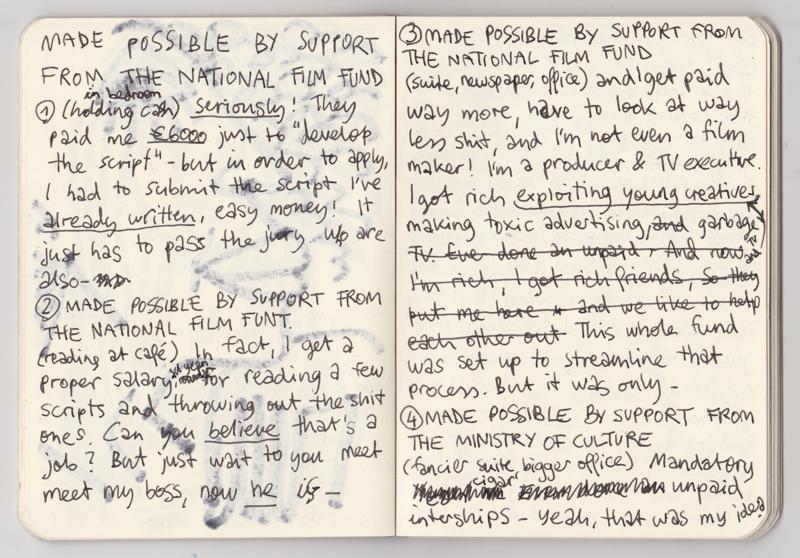 MADE POSSIBLE BY SUPPORT
FROM THE NATIONAL FILM FUND
in bedroom
① (holding cash) seriously! They
paid me €6000 just to "develop
the script" - but in order to apply,
I had to submit the script I've
already written, easy money! It
just has to pass the jury who are
also -
② MADE POSSIBLE BY SUPPORT FROM
THE NATIONAL FILM FUNT.
(reading at café) In fact, I get a
proper salary, for reading a few
scripts and throwing out the shit
ones. Can you believe that's a
job? But just wait to you meet
meet my boss, now he is -
③ MADE POSSIBLE BY SUPPORT FROM
THE NATIONAL FILM FUND
(suite, newspaper, office) and I get paid
way more, have to look at way
less shit, and I'm not even a film
maker! I'm a producer & TV executive.
I got rich exploiting young creatives
making toxic advertising, and garbage
TV. Eve done an unpaid, And now
and TV
I'm rich, I got rich friends, So they
put me here and we like to help
each other out This whole fund
was set up to streamline that
process. But it was only -
④ MADE POSSIBLE BY SUPPORT FROM
THE MINISTRY OF CULTURE
(fancier suite, bigger office) Mandatory
cigar
unpaid
interships - yeah, that was my idea